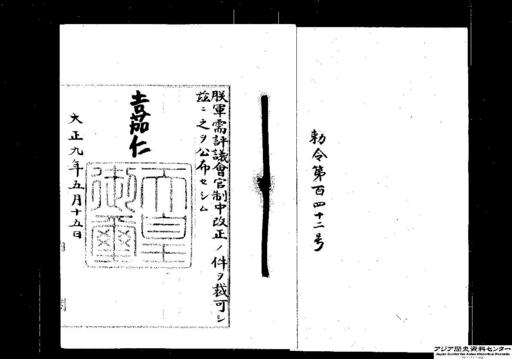 勅令第百四十二号
朕軍需評議會官制中改正ノ件ヲ裁可シ
茲ニ之ヲ公布セシム
嘉仁
天皇御璽
大正九年五月十五日
アジア歴史資料センター
Japan Center for Asian Historical Records